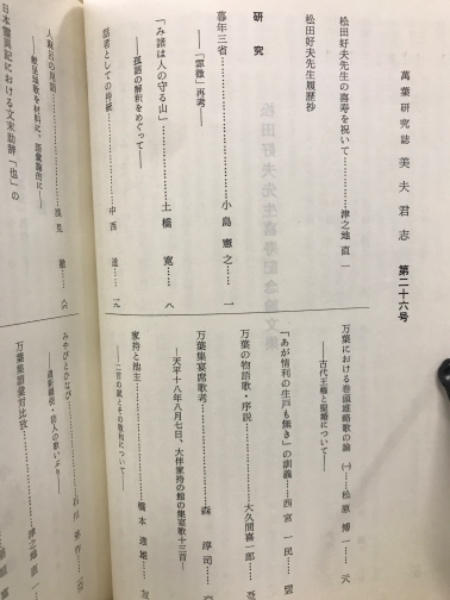 萬葉研究誌 美夫君志 第二十六号
松田好夫先生の喜寿を祝いて……津之地直一
松田好夫先生履歴抄
研究
暮年三省……小島憲之……一
――「霏微」再考――
「み諸は人の守る山」……土橋寛……八
――孤語の解釈をめぐって――
話者としての
中西進……
人麻呂の用語
――献呈挽歌を材料に、語彙論的に――
日本霊異記における文末助辞「也」の
万葉における巻頭雄略歌の論㈠……松原博一……
――古代王権と聖婚について――
「あが情利の生戸も無き」の訓義……西宮一民……
万葉の物語歌・序説……大久間喜一郎……
万葉集宴席歌考……森淳司……
―天平十八年八月七日、大伴家持の館の集宴歌十三首―
家持と池主……橋本達雄……
みやびとひなび
万葉集語彙対比攷
津之地直一
松田好夫先生喜寿記念論文集